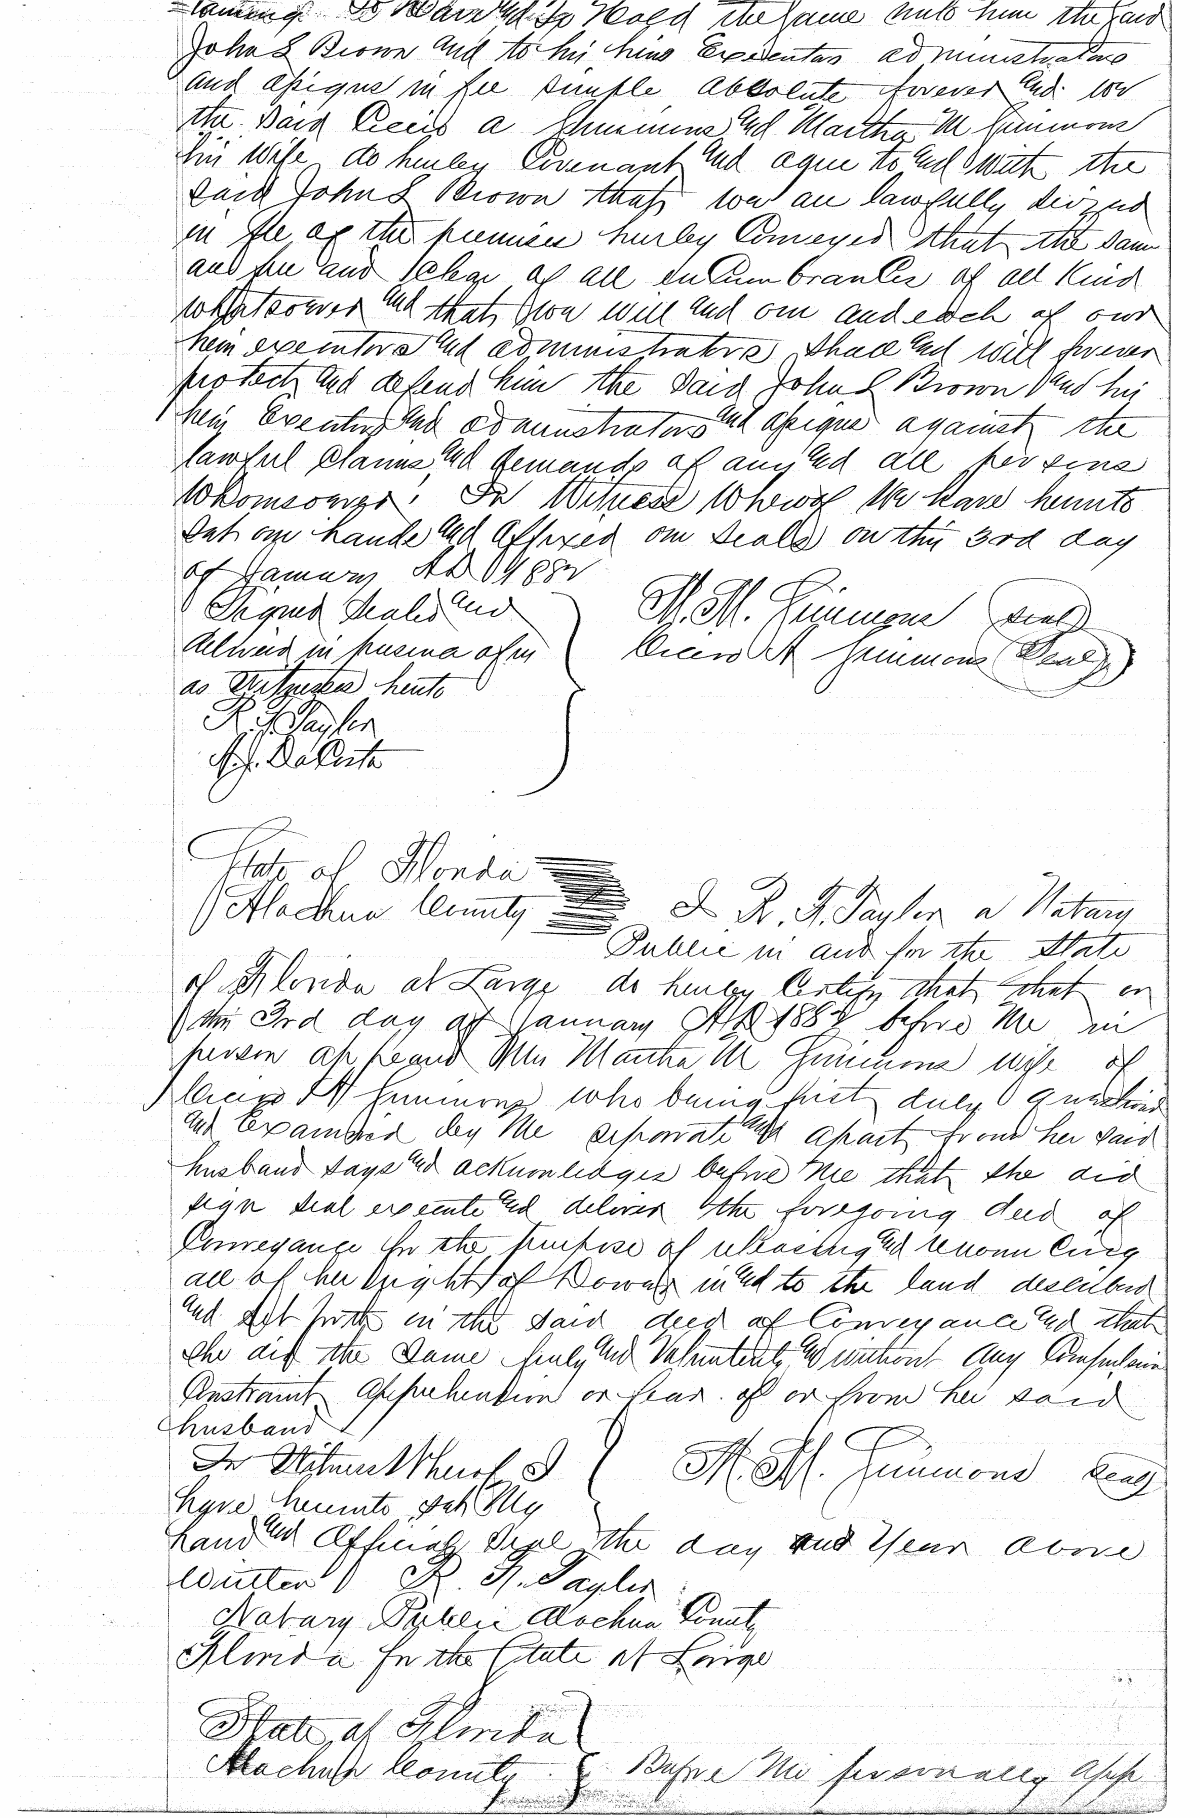 taining To Have and To Hold the same unto him the said
John S Brown and to his heirs Executors administrators
and assigns in fee simple absolute forever and we
the said Cicero A Simmons and Martha M Simmons
his wife do hereby Covenant and agree to and with the
said John S Brown that we are lawfully seized
in fee of the premises hereby Conveyed that the same
are free and Clear of all enCumbranCes of all Kind
whatsoever and that we will and our and each of our
heirs executors and administrators shall and will forever
protect and defend him the said John S Brown and his
heirs Executors and administrators and assigns against the
lawful Claims and demands of any and all persons
Whomsoever. In Witness Whereof We have hereunto
set our hands and Affixed our seals on this 3rd day
of January AD 1882
Signed Sealed and
delivered in presence of us
as Witnesses hereto
M. M. Simmons (seal)
Cicero A Simmons (Seal)
R. F. Taylor
A. J. DaCosta
State of Florida
Alachua County I R. F. Taylor a Notary
Public in and for the State
of Florida at Large do hereby Certify that that on
this 3rd day of January AD 1882 before Me in
person appeared Mrs Martha M Simmons wife of
Cicero A Simmons who being first duly questioned
and Examined by Me separate and apart from her said
husband says and acknowledges before Me that she did
sign seal execute and deliver the foregoing deed of
Conveyance for the purpose of releasing and renouncing
all of her right of Dower in and to the land described
and set forth in the said deed of Conveyance and that
she did the same freely and Voluntarily and without any Compulsion
Constraint Apprehension or fear of or from her said
husband
In Witness Whereof I
have hereunto set My
M. M. Simmons Seal
hand and Official Seal the day and Year above
written R. F. Taylor
Notary Public Alachua County
Florida for the State at Large
State of Florida
Alachua County Before Me personally app